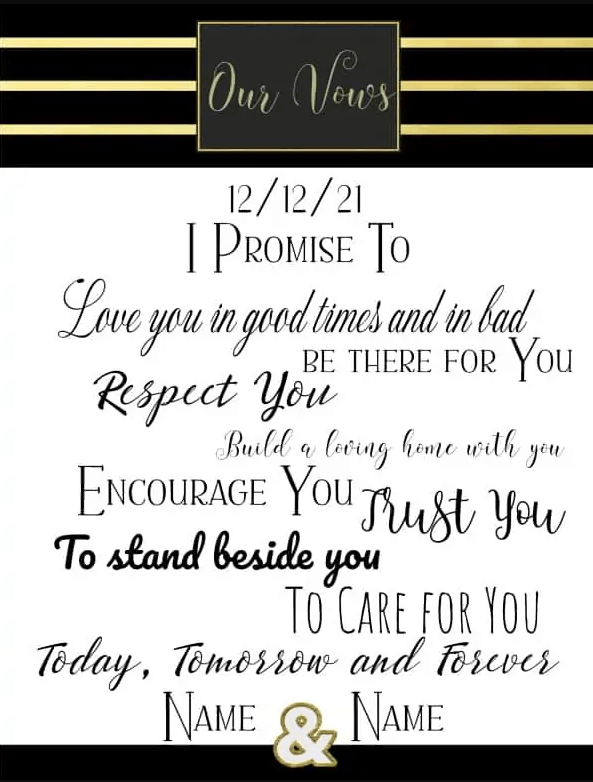 Our Vows
12/12/21
I Promise To
Love you in good times and in bad
be there for You
Respect You
Build a loving home with you
Encourage You
Trust You
To stand beside you
To Care for You
Today, Tomorrow and Forever
Name & Name